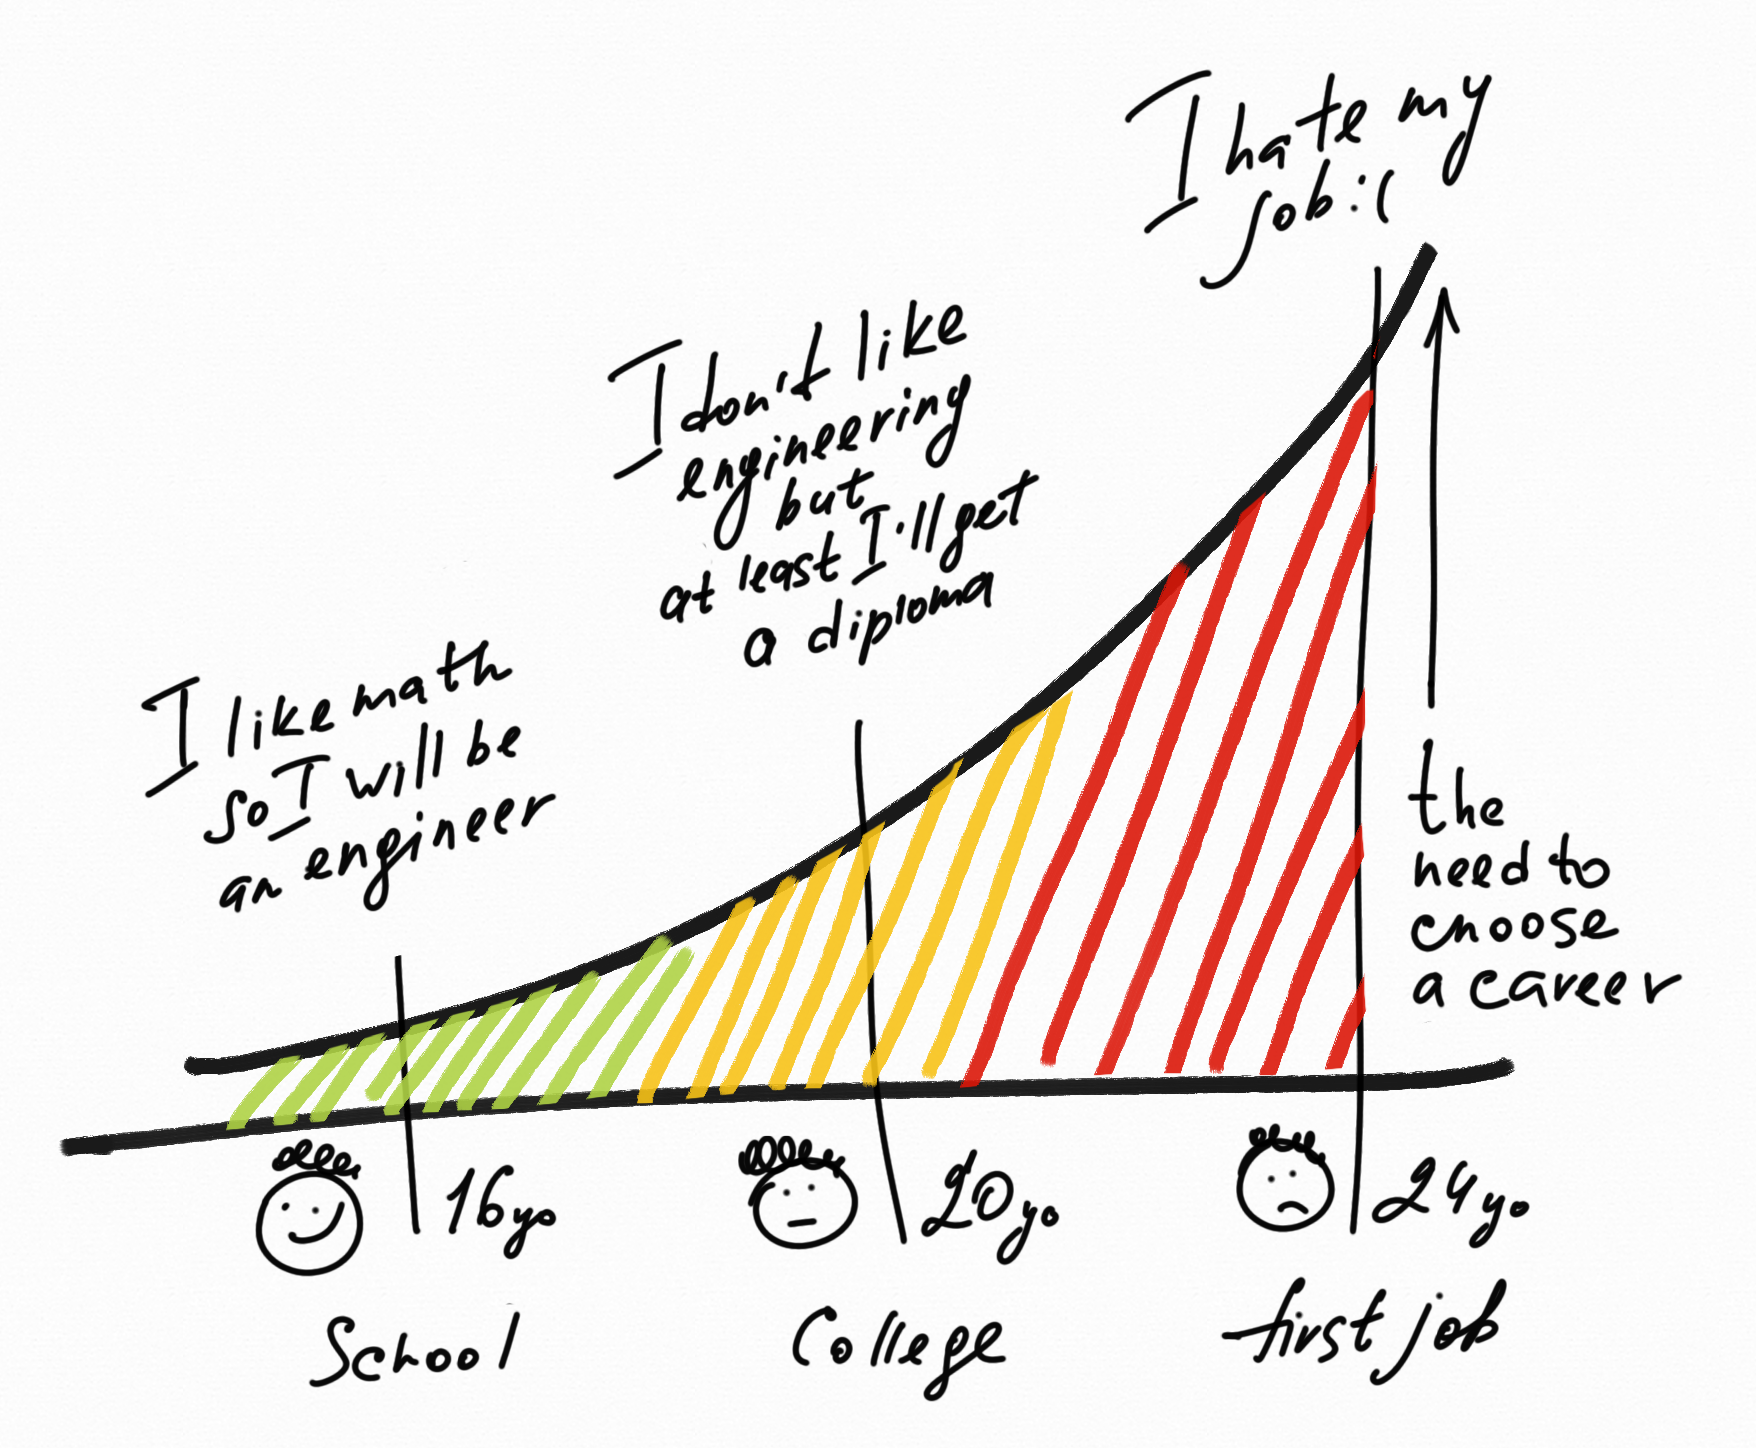 I hate my
job :(
I don't like
engineering
but
at least I'll get
a diploma
I like math
so I will be
an engineer
the
need to
choose
a career
16yo
20yo
24yo
School
College
first job